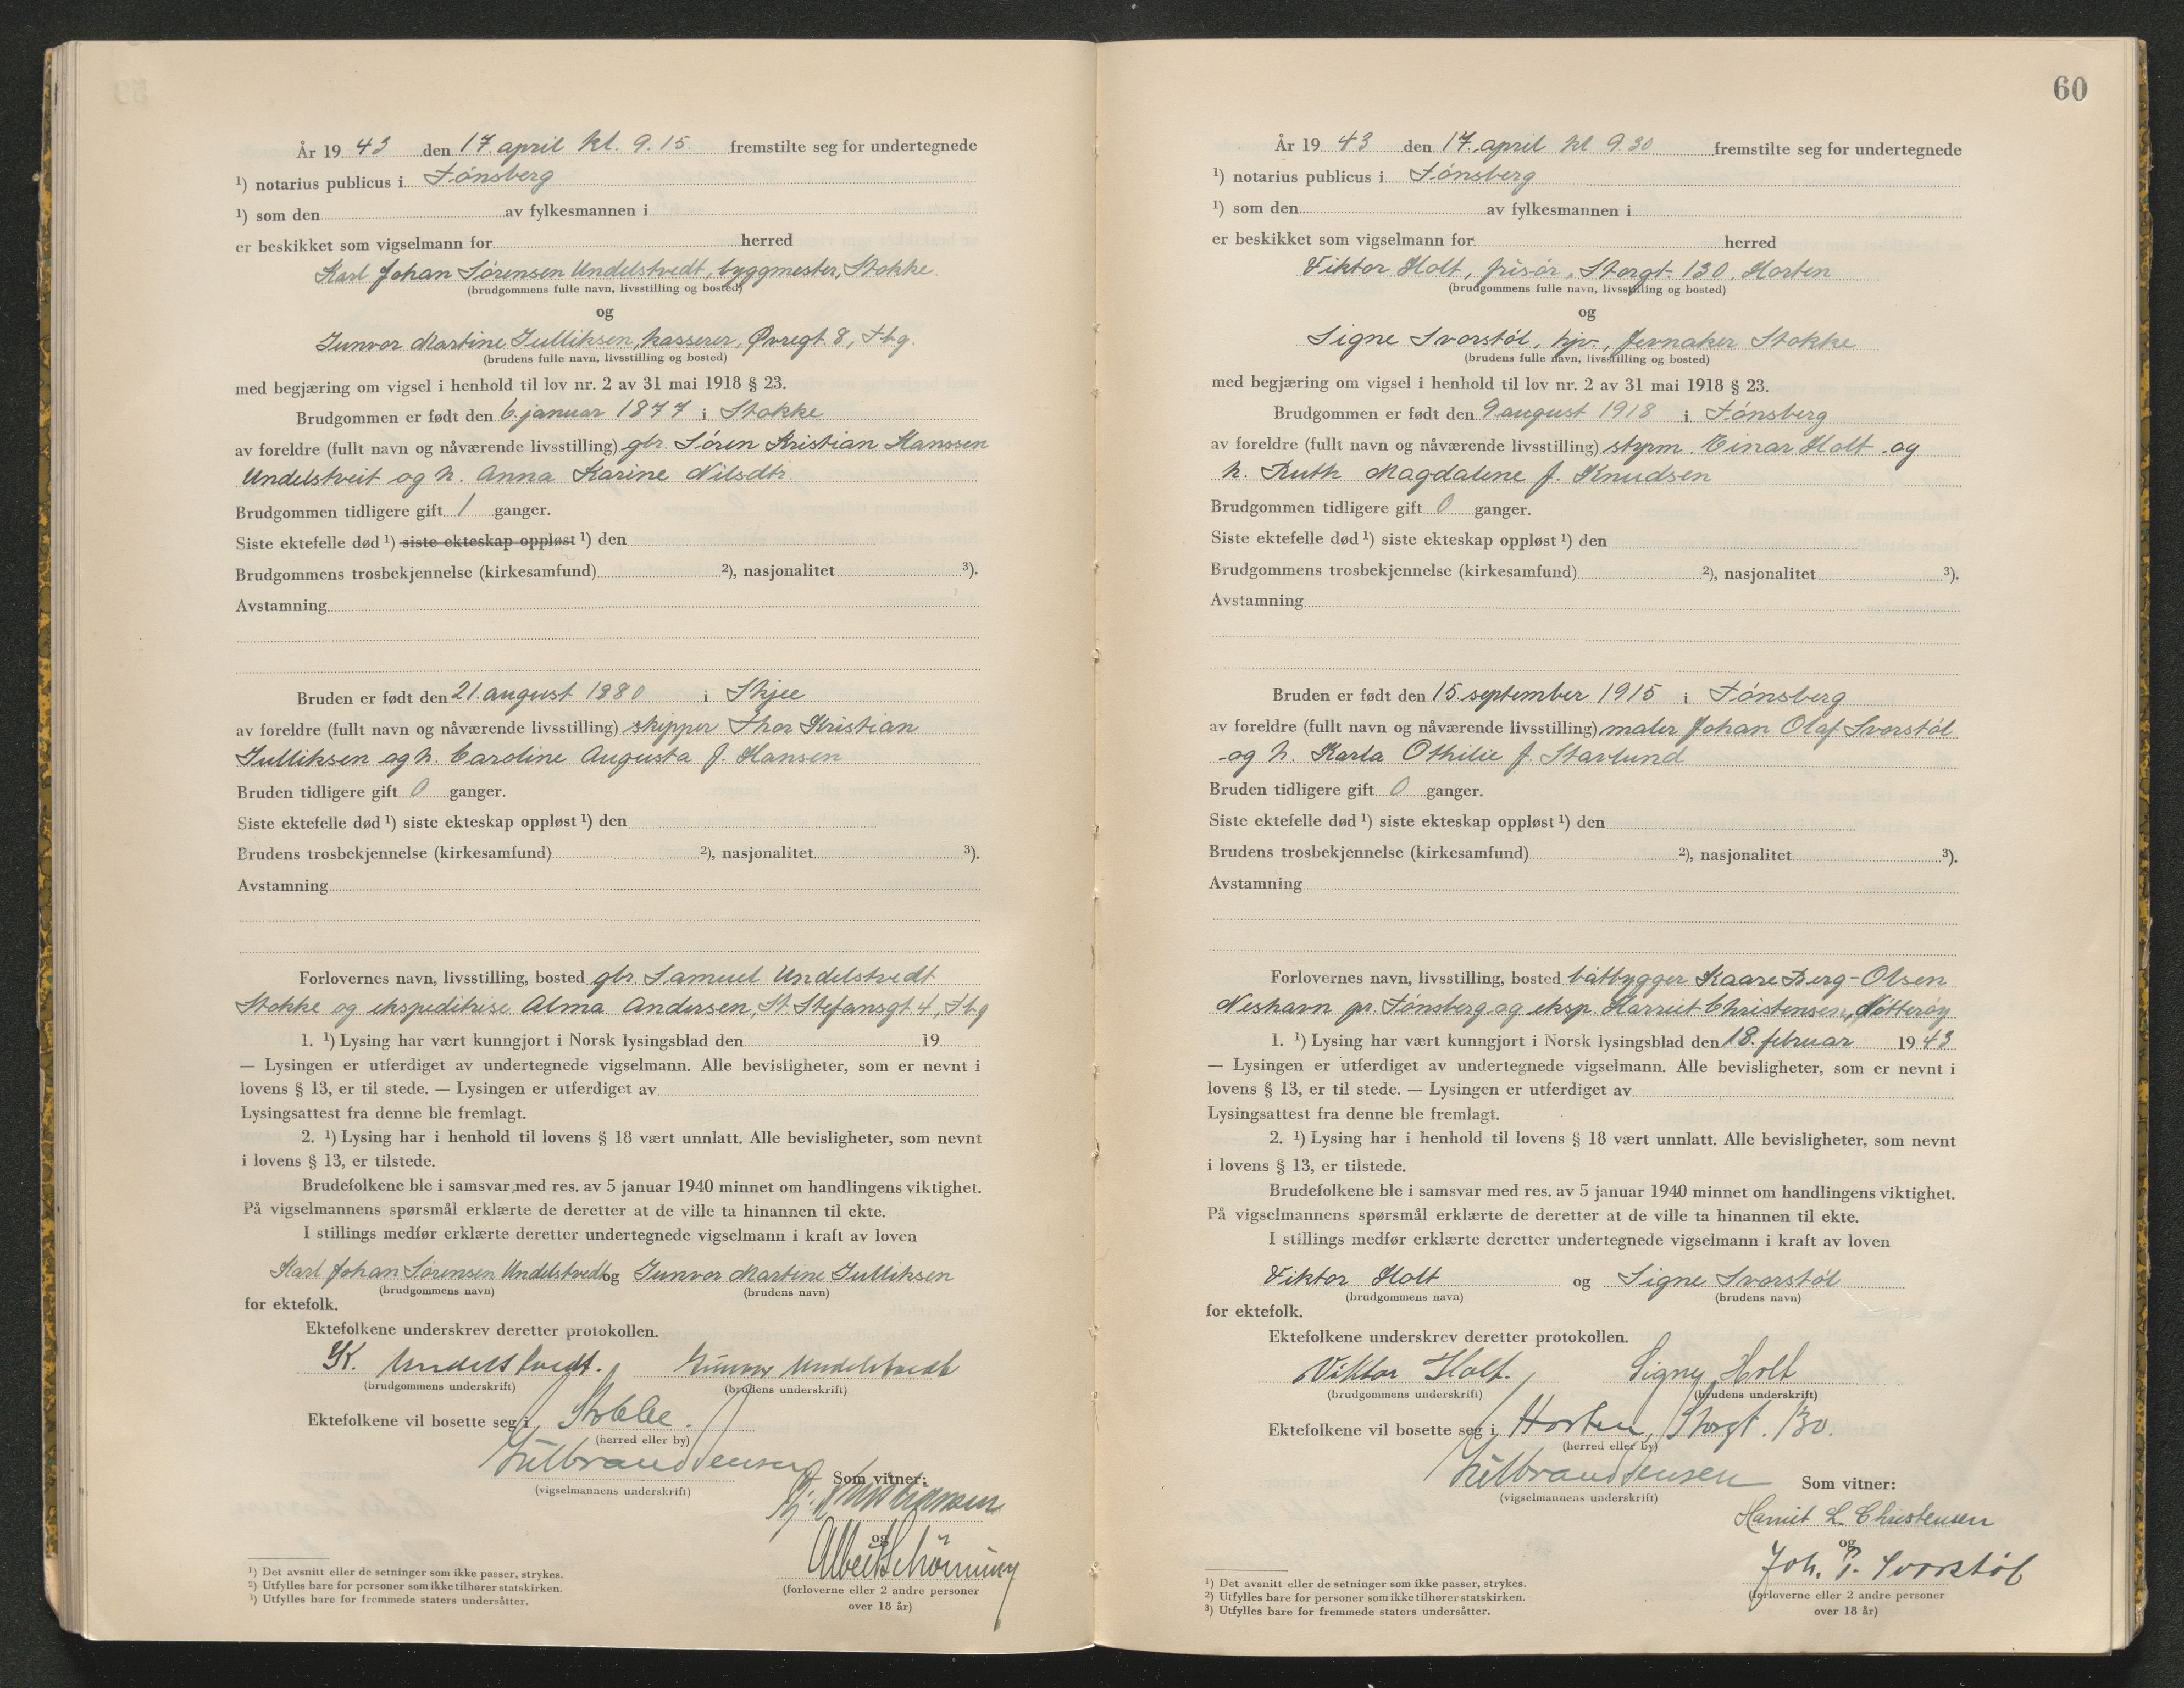 År 19 43 den 17. april kl. 9.15 fremstilte seg for undertegnede
¹) notarius publicus i Tønsberg
¹) som den av fylkesmannen i
er beskikket som vigselmann for herred
Karl Johan Sørensen Undelstvedt, byggmester, Stokke.
(brudgommens fulle navn, livsstilling og bosted)
og
Gunvor Martine Gulliksen, kasserer, Øvregt. 8, Tbg.
(brudens fulle navn, livsstilling og bosted)
med begjæring om vigsel i henhold til lov nr. 2 av 31 mai 1918 § 23.
Brudgommen er født den 6. januar 1877 i Stokke
av foreldre (fullt navn og nåværende livsstilling) gbr. Søren Kristian Hanssen
Undelstveit og h. Anna Karine Nilsdtr.
Brudgommen tidligere gift 1 ganger.
Siste ektefelle død ¹) siste ekteskap oppløst ¹) den
Brudgommens trosbekjennelse (kirkesamfund) ²), nasjonalitet ³).
Avstamning
Bruden er født den 21. august 1880 i Skjee
av foreldre (fullt navn og nåværende livsstilling) skipper Thor Kristian
Gulliksen og h. Caroline Augusta f. Hansen
Bruden tidligere gift 0 ganger.
Siste ektefelle død ¹) siste ekteskap oppløst ¹) den
Brudens trosbekjennelse (kirkesamfund) ²), nasjonalitet ³).
Avstamning
Forlovernes navn, livsstilling, bosted gbr. Samuel Undelstvedt
Stokke og ekspeditrise Alma Andersen, St. Stefansgt 4, Tbg
1. ¹) Lysing har vært kunngjort i Norsk lysingsblad den 19
— Lysingen er utferdiget av undertegnede vigselmann. Alle bevisligheter, som er nevnt i
lovens § 13, er til stede. — Lysingen er utferdiget av
Lysingsattest fra denne ble fremlagt.
2. ¹) Lysing har i henhold til lovens § 18 vært unnlatt. Alle bevisligheter, som nevnt
i lovens § 13, er tilstede.
Brudefolkene ble i samsvar med res. av 5 januar 1940 minnet om handlingens viktighet.
På vigselmannens spørsmål erklærte de deretter at de ville ta hinannen til ekte.
I stillings medfør erklærte deretter undertegnede vigselmann i kraft av loven
Karl Johan Sørensen Undelstvedt og Gunvor Martine Gulliksen
(brudgommens navn) (brudens navn)
for ektefolk.
Ektefolkene underskrev deretter protokollen.
K. Undelstvedt. Gunvor Undelstvedt
(brudgommens underskrift) (brudens underskrift)
Ektefolkene vil bosette seg i Stokke.
(herred eller by)
Gulbrandsensen
(vigselmannens underskrift)
Som vitner:
Kristiansen
og
Albert Schönning
(forloverne eller 2 andre personer
over 18 år)
¹) Det avsnitt eller de setninger som ikke passer, strykes.
²) Utfylles bare for personer som ikke tilhører statskirken.
³) Utfylles bare for fremmede staters undersåtter.
60
År 19 43 den 17. april kl 9.30 fremstilte seg for undertegnede
¹) notarius publicus i Tønsberg
¹) som den av fylkesmannen i
er beskikket som vigselmann for herred
Viktor Holt, frisør, Storgt. 130, Horten
(brudgommens fulle navn, livsstilling og bosted)
og
Signe Svorstøl, hjv., Jernaker Stokke
(brudens fulle navn, livsstilling og bosted)
med begjæring om vigsel i henhold til lov nr. 2 av 31 mai 1918 § 23.
Brudgommen er født den 9 august 1918 i Tønsberg
av foreldre (fullt navn og nåværende livsstilling) styrm. Einar Holt og
h. Ruth Magdalene f. Knudsen
Brudgommen tidligere gift 0 ganger.
Siste ektefelle død ¹) siste ekteskap oppløst ¹) den
Brudgommens trosbekjennelse (kirkesamfund) ²), nasjonalitet ³).
Avstamning
Bruden er født den 15. september 1915 i Tønsberg
av foreldre (fullt navn og nåværende livsstilling) maler Johan Olaf Svorstøl
og h. Karla Othilie f. Starlund
Bruden tidligere gift 0 ganger.
Siste ektefelle død ¹) siste ekteskap oppløst ¹) den
Brudens trosbekjennelse (kirkesamfund) ²), nasjonalitet ³).
Avstamning
Forlovernes navn, livsstilling, bosted båtbygger Kaare Berg-Olsen
Neshavn pr. Tønsberg og eksp. Harriet Christensen, Nøtterøy
1. ¹) Lysing har vært kunngjort i Norsk lysingsblad den 18. februar 19 43
— Lysingen er utferdiget av undertegnede vigselmann. Alle bevisligheter, som er nevnt i
lovens § 13, er til stede. — Lysingen er utferdiget av
Lysingsattest fra denne ble fremlagt.
2. ¹) Lysing har i henhold til lovens § 18 vært unnlatt. Alle bevisligheter, som nevnt
i lovens § 13, er tilstede.
Brudefolkene ble i samsvar med res. av 5 januar 1940 minnet om handlingens viktighet.
På vigselmannens spørsmål erklærte de deretter at de ville ta hinannen til ekte.
I stillings medfør erklærte deretter undertegnede vigselmann i kraft av loven
Viktor Holt og Signe Svorstøl
(brudgommens navn) (brudens navn)
for ektefolk.
Ektefolkene underskrev deretter protokollen.
Viktor Holt. Signy Holt
(brudgommens underskrift) (brudens underskrift)
Ektefolkene vil bosette seg i Horten, Storgt. 130.
(herred eller by)
Gulbrandsensen
(vigselmannens underskrift)
Som vitner:
Harriet L. Christensen
og
Joh. O. Svorstøl
(forloverne eller 2 andre personer
over 18 år)
¹) Det avsnitt eller de setninger som ikke passer, strykes.
²) Utfylles bare for personer som ikke tilhører statskirken.
³) Utfylles bare for fremmede staters undersåtter.